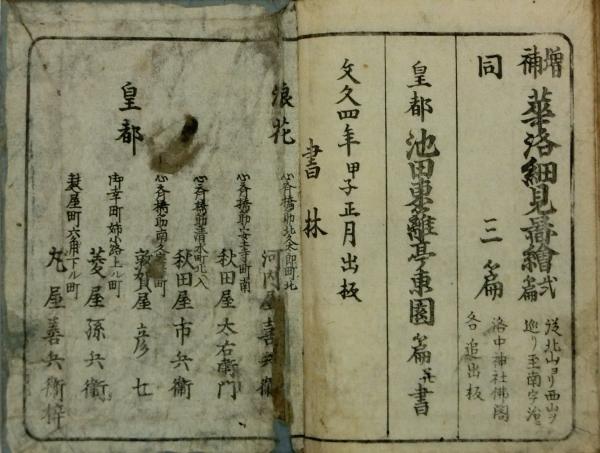 増補 華洛細見圖繪 弐篇 従北山ヨリ西山ヲ
巡リ至南宇治ニ
同 三篇 洛中神社佛閣
各追出板
皇都 池田東籬亭東園篇并書
文久四年甲子正月出板
書林
浪花 心斉橋助北久太郎町北 河内屋喜兵衛
心斉橋助安土寺町南 秋田屋太右衛門
心斉橋助清水町北入 秋田屋市兵衛
心斉橋助南久 敦賀屋彦七
皇都 御幸町姉小路上ル町 菱屋孫兵衛
麩屋町六角下ル町 丸屋善兵衛梓